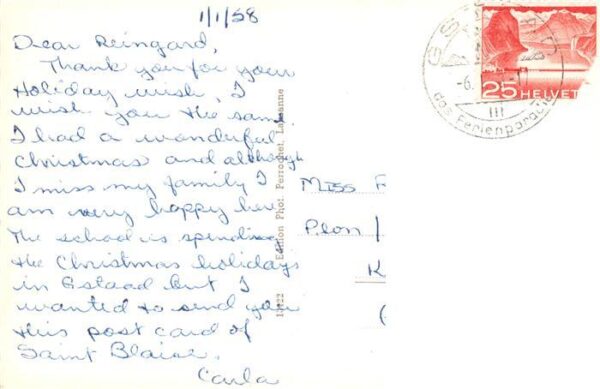 1/1/58
Dear Reingard,
Thank you for your
Holiday wish, I
wish you the same
I had a wonderful
Christmas and although
I miss my family I
am very happy here
The school is spending
the Christmas holidays
in Gstaad but I
wanted to send you
this post card of
Saint Blaise.
Carla
Edition Phot. Perrochet, Lausanne
Miss
Plön /
K
GST
-6.
25 HELVET
III
das Ferienparadies